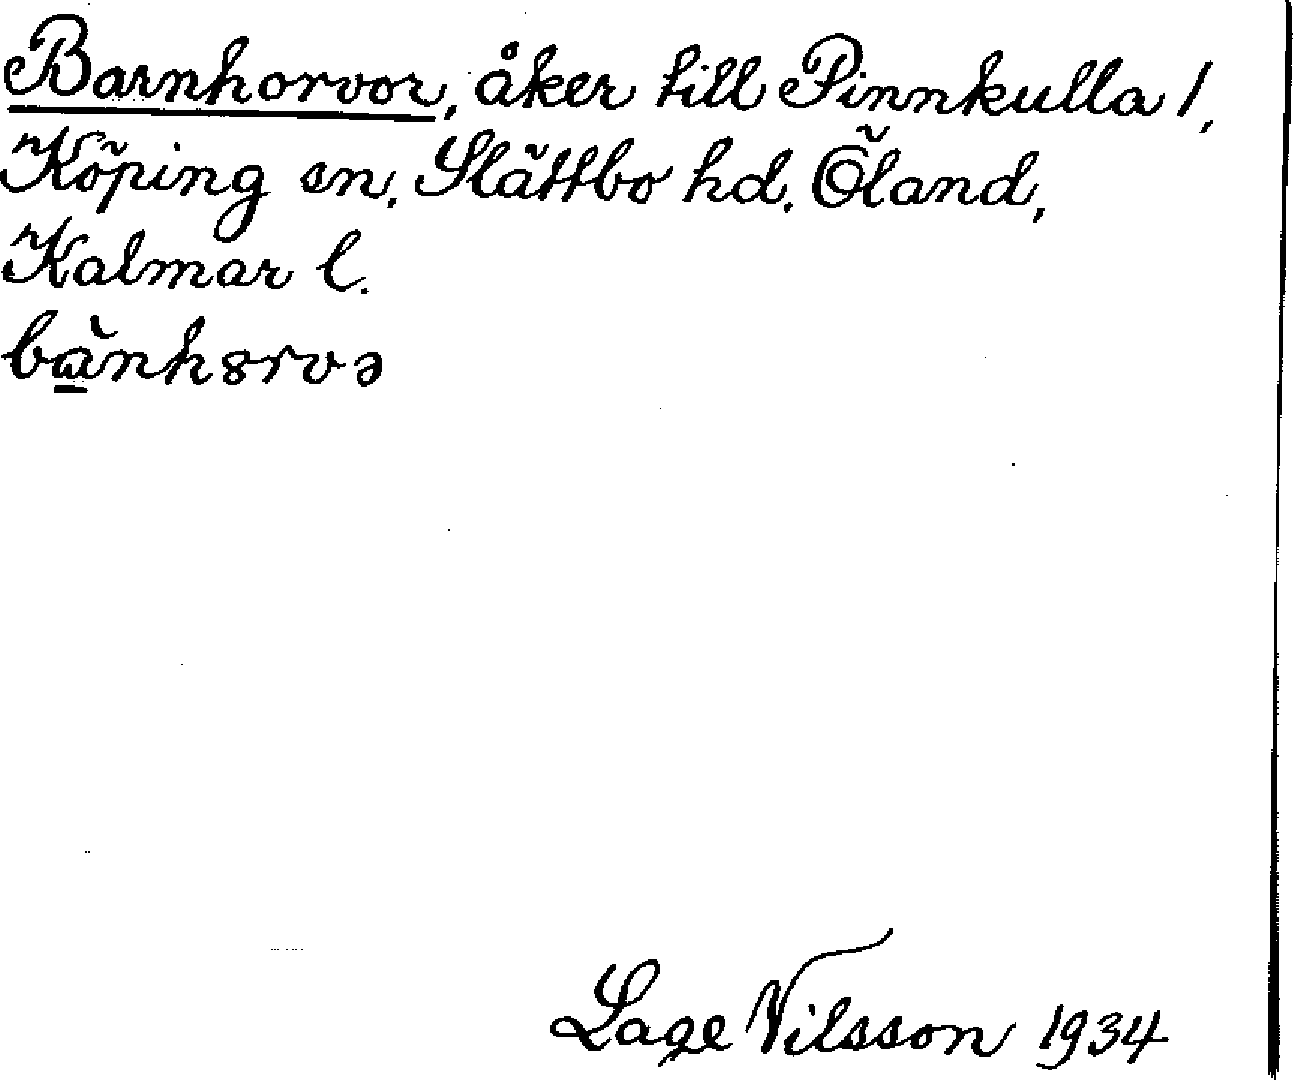 Barnhorvor, åker till Pinnkulla 1,
Köping sn. Slättbo hd. Öland,
Kalmar l.
Lage Nilsson 1934